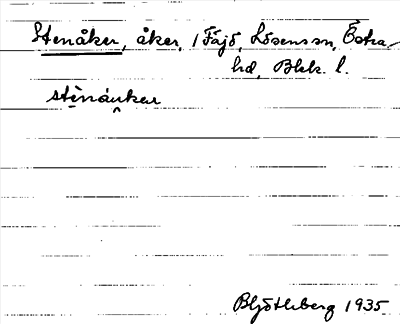 Stenåker, åker, 1 Fäjö, Lösenssn, Östra
hd, Blek. l.
stènáṷker
Bj Göthberg 1935